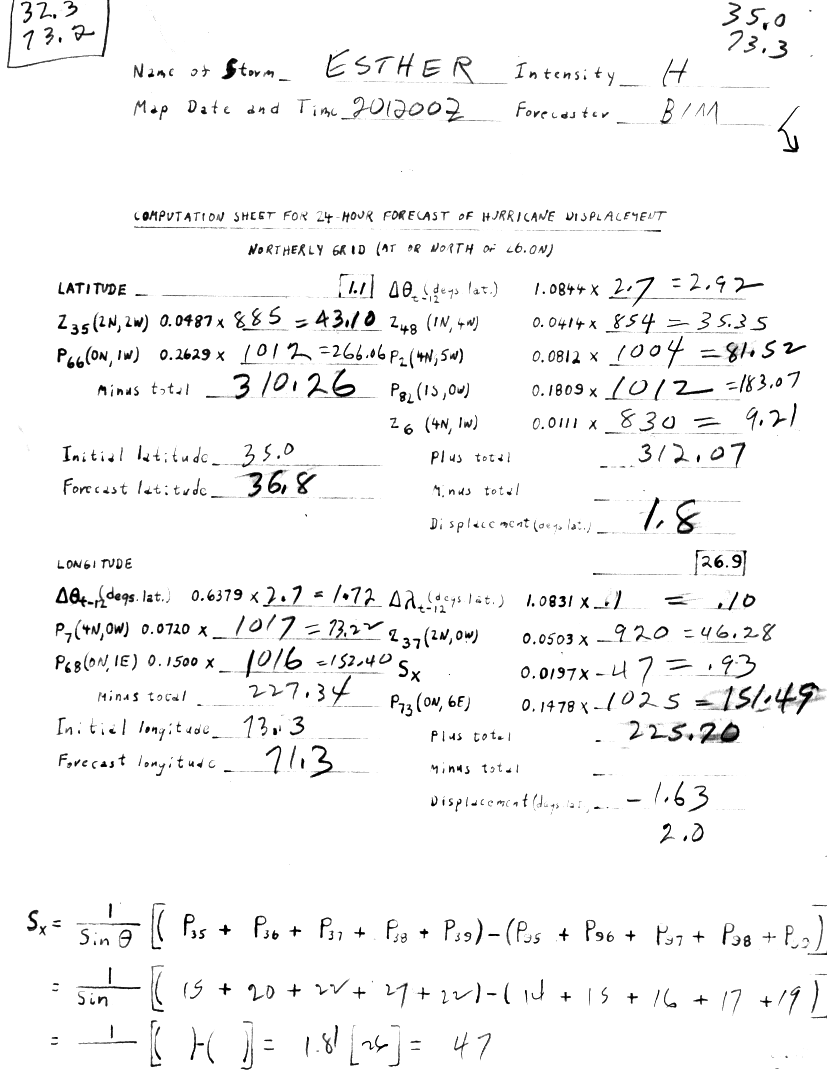 32.3
73.2
35.0
73.3
Name of Storm ESTHER Intensity H
Map Date and Time 201200Z Forecaster
COMPUTATION SHEET FOR 24-HOUR FORECAST OF HURRICANE DISPLACEMENT
NORTHERLY GRID (AT OR NORTH OF 26.0N)
LATITUDE 1.1 Δθt-12 (degs lat.) 1.0844 x 2.7 = 2.92
Z35 (2N, 2W) 0.0487 x 885 = 43.10 Z48 (1N, 4W) 0.0414 x 854 = 35.35
P66 (0N, 1W) 0.2629 x 1012 = 266.06 P2 (4N, 5W) 0.0812 x 1004 = 81.52
Minus total 310.26 P82 (1S, 0W) 0.1809 x 1012 = 183.07
Z6 (4N, 1W) 0.0111 x 830 = 9.21
Initial latitude 35.0 Plus total 312.07
Forecast latitude 36.8 Minus total
Displacement (degs lat.) 1.8
LONGITUDE 26.9
Δθt-12 (degs. lat.) 0.6379 x 2.7 = 1.72 Δλt-12 (degs lat.) 1.0831 x .1 = .10
P7 (4N, 0W) 0.0720 x 1017 = 73.22 Z37 (2N, 0W) 0.0503 x 920 = 46.28
P68 (0N, 1E) 0.1500 x 1016 = 152.40 Sx 0.0197 x - 47 = .93
Minus total 227.34 P73 (0N, 6E) 0.1478 x 1025 = 151.49
Initial longitude 73.3 Plus total 225.70
Forecast longitude 71.3 Minus total
Displacement (degs lat. - 1.63
2.0
Sx = 1/Sin θ [( P35 + P36 + P37 + P38 + P39 ) - ( P95 + P96 + P97 + P98 + P99 )]
= 1/Sin [( 15 + 20 + 22 + 27 + 22 ) - ( 14 + 15 + 16 + 17 + 19 )]
= 1/ [( )-( )] = 1.81 [26] = 47